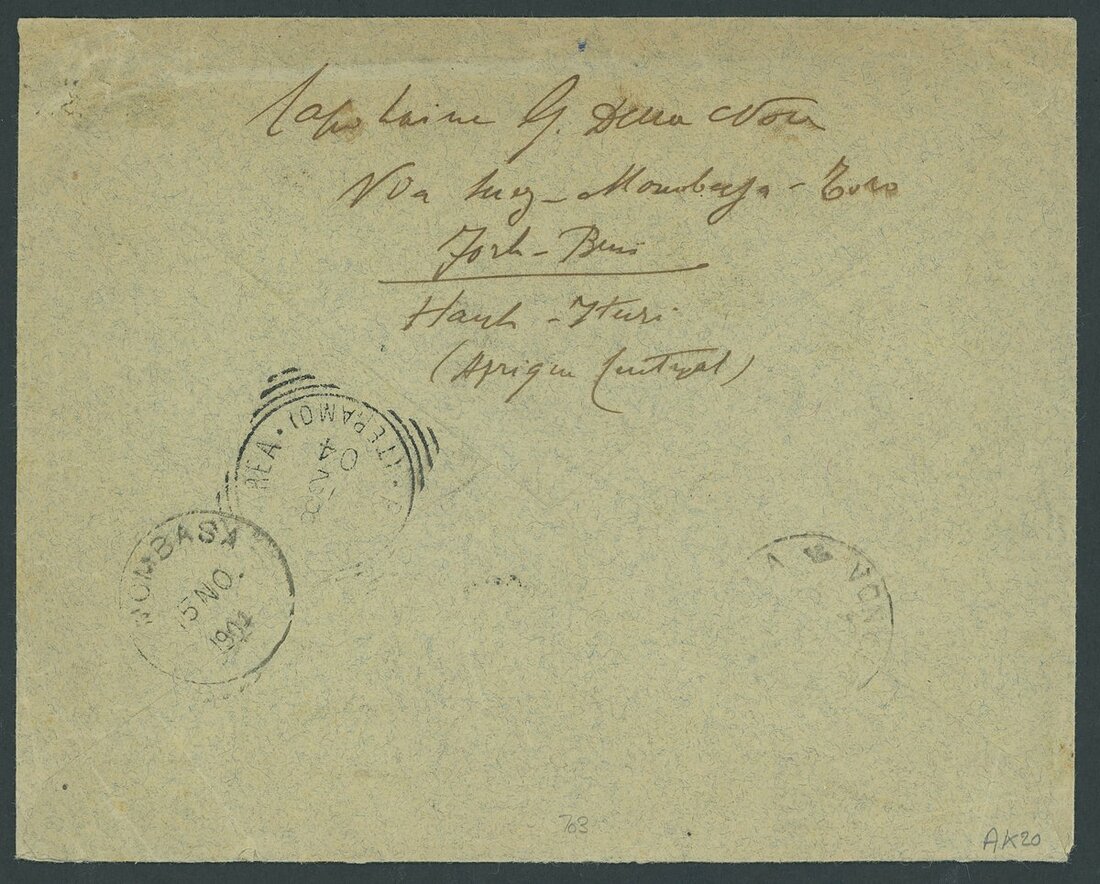 Capitaine G. Della Nora
Via Suez - Mombassa - Toro
Fort - Beni
Haut - Ituri
(Afrique Central)
REA • (TERAMO)
04
MOMBASA
15 NO
1904
703
AK20